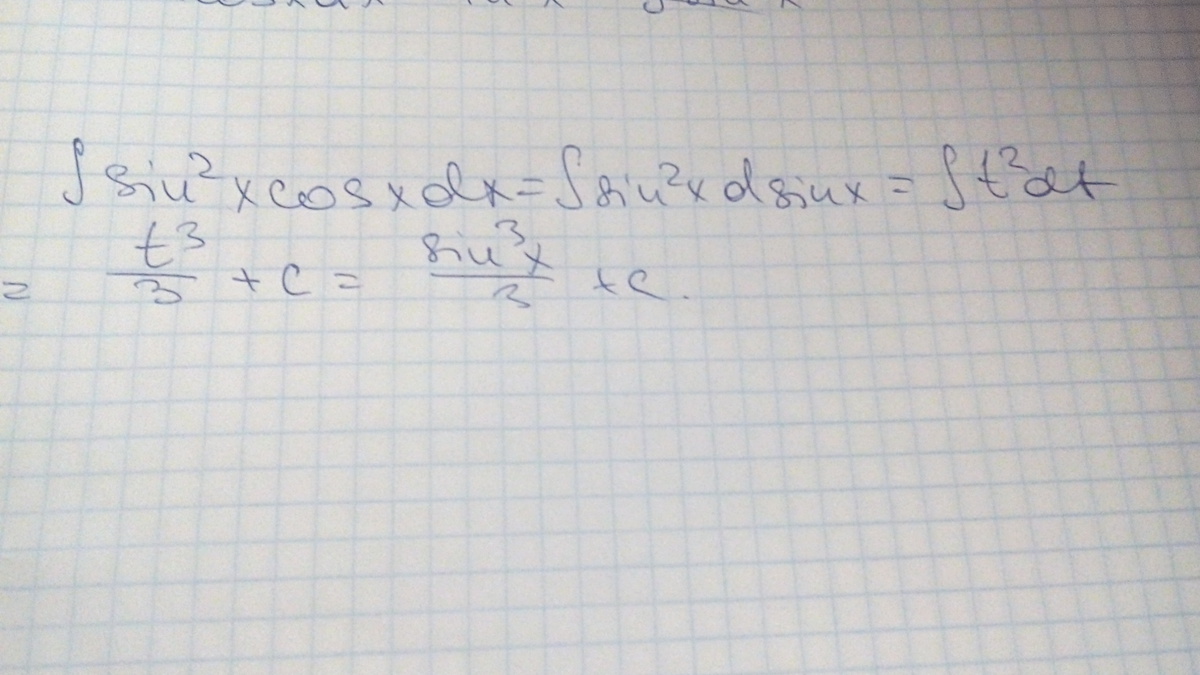 ∫ sin²x cosx dx = ∫ sin²x d sinx = ∫ t² dt
= t³/3 + c = sin³x/3 + c.